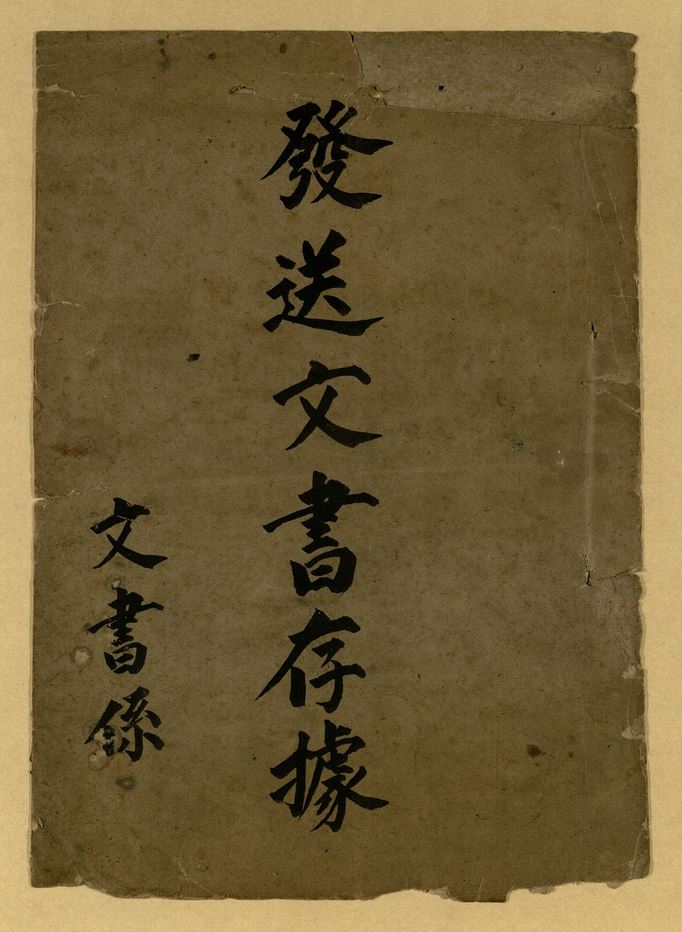 發送文書存據
文書係